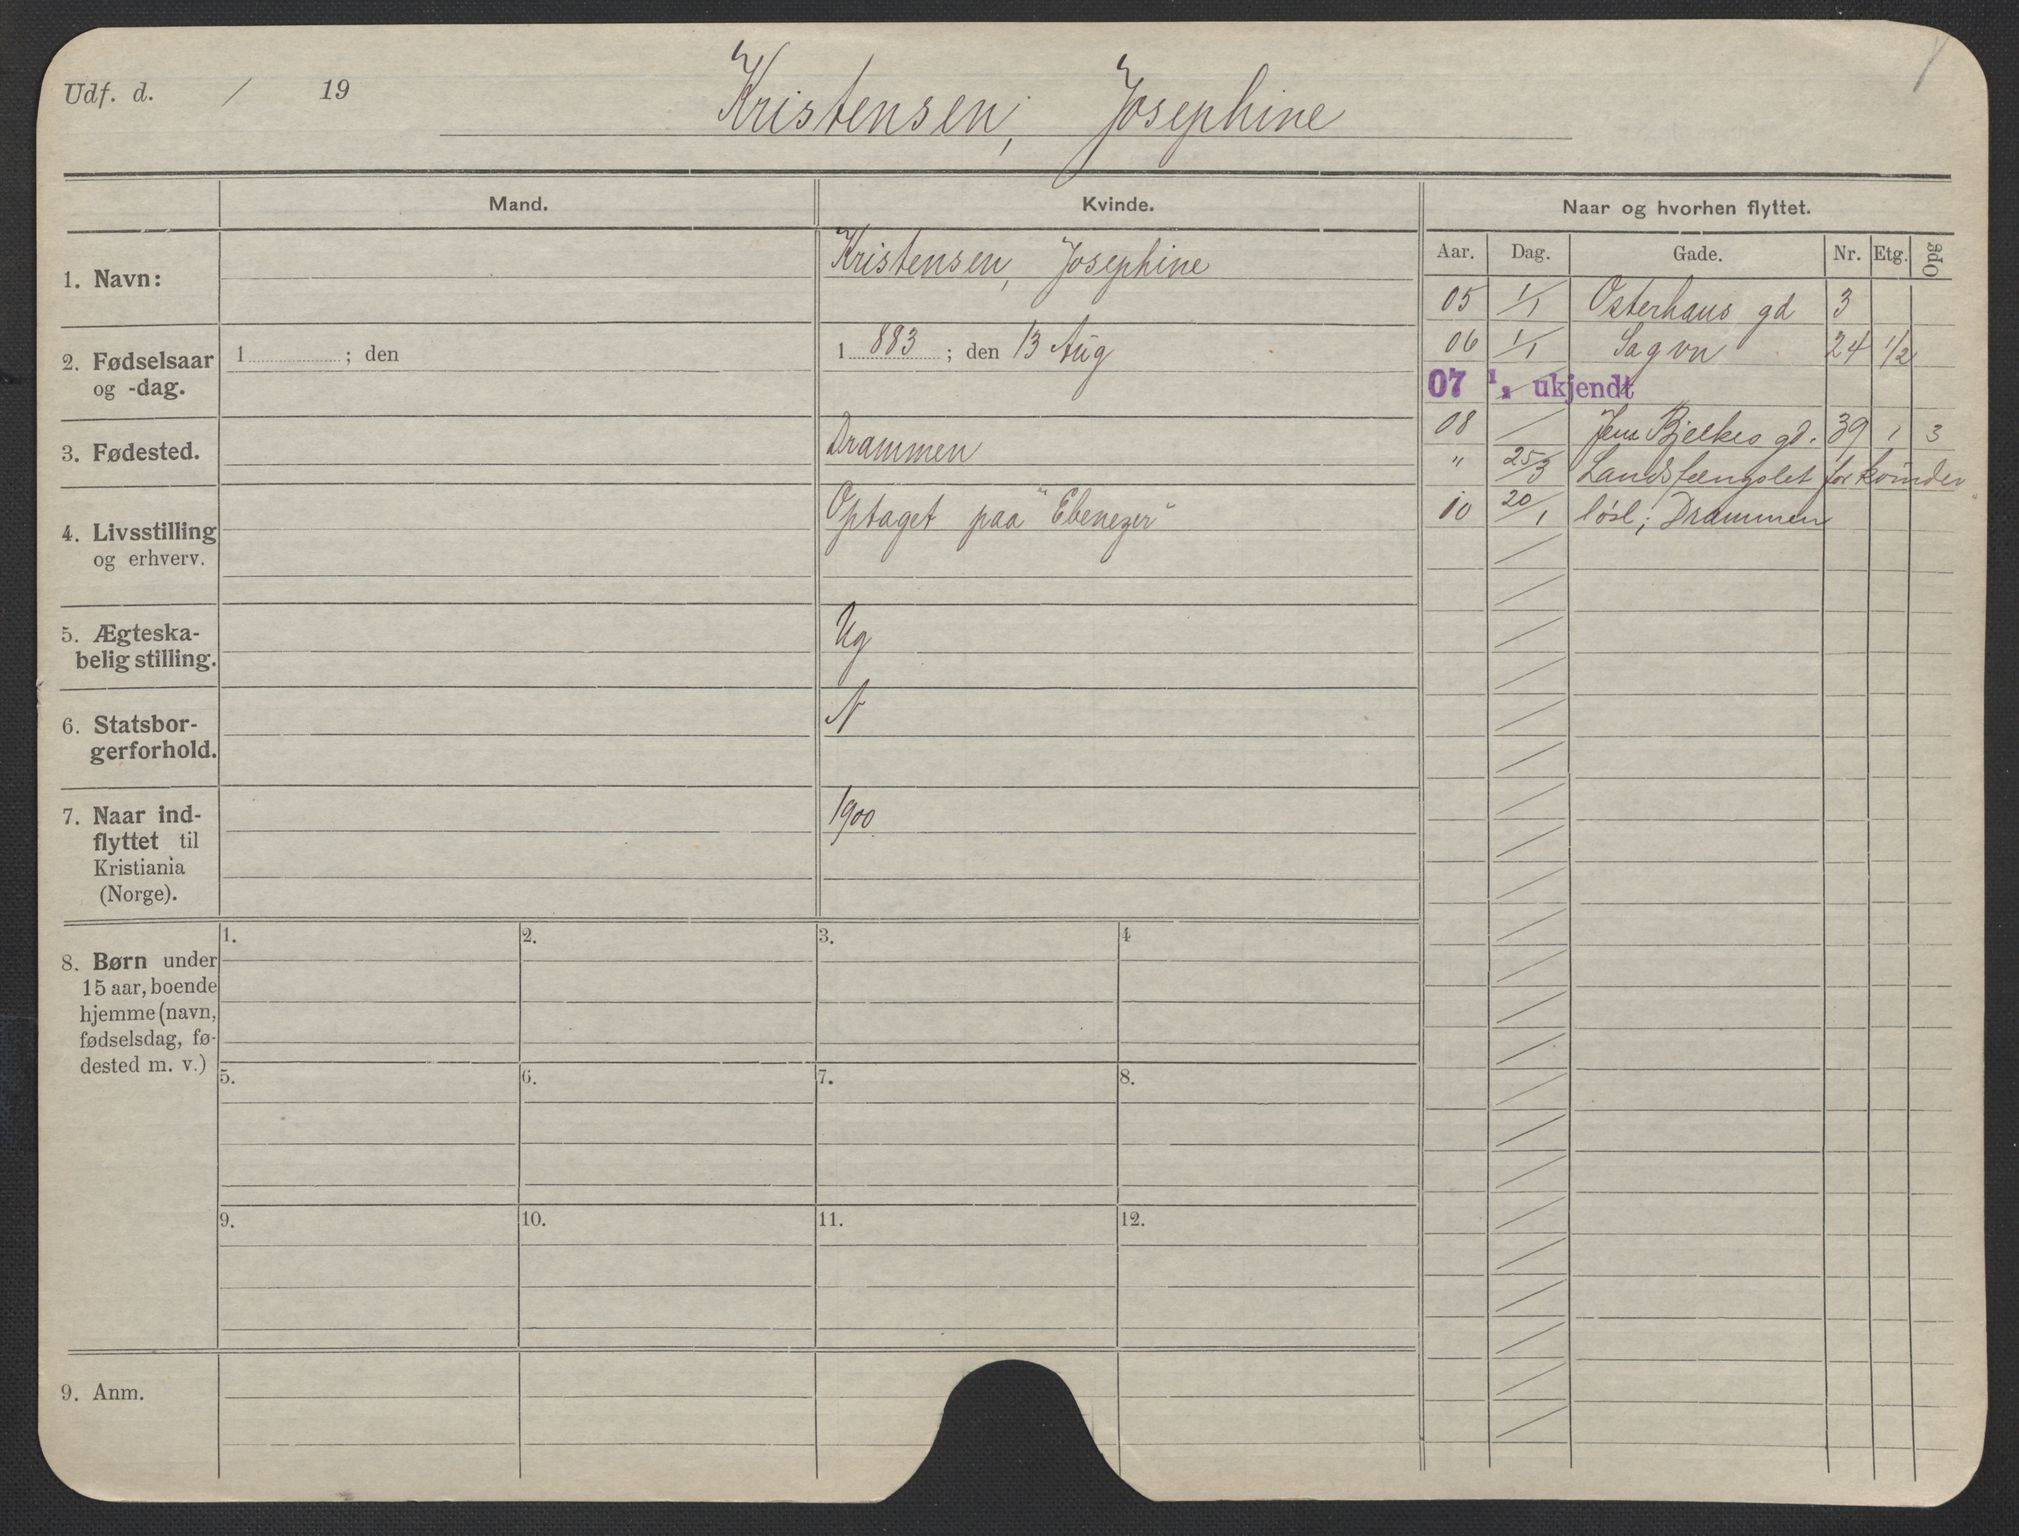 Udf. d. / 19
Kristensen, Josephine
Mand.
Kvinde.
Naar og hvorhen flyttet.
Aar. Dag. Gade. Nr. Etg. Opg
1. Navn:
Kristensen, Josephine
2. Fødselsaar
og -dag.
1 ; den
1 883 ; den 13 Aug
3. Fødested.
Drammen
4. Livsstilling
og erhverv.
Optaget paa "Ebenezer"
5. Ægteska-
belig stilling.
Ug
6. Statsbor-
gerforhold.
N
7. Naar ind-
flyttet til
Kristiania
(Norge).
1900
05 1/1 Osterhaus gd 3
06 1/1 Sagvn 24 1/2
07 ukjendt
08 / Jens Bjelkes gd. 39 1 3
" 25/3 Landsfængslet for kvinder
10 20/1 løsl; Drammen
8. Børn under
15 aar, boende
hjemme (navn,
fødselsdag, fø-
dested m. v.)
1. 2. 3. 4
5. 6. 7. 8.
9. 10. 11. 12.
9. Anm.